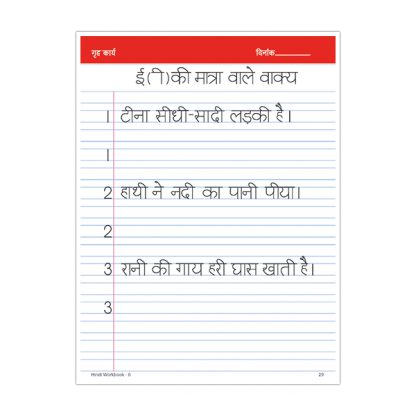 गृह कार्य दिनांक
ई(ी)की मात्रा वाले वाक्य
1 टीना सीधी-सादी लड़की है।
1
2 हाथी ने नदी का पानी पीया।
2
3 रानी की गाय हरी घास खाती है।
3
Hindi Workbook - 0 29